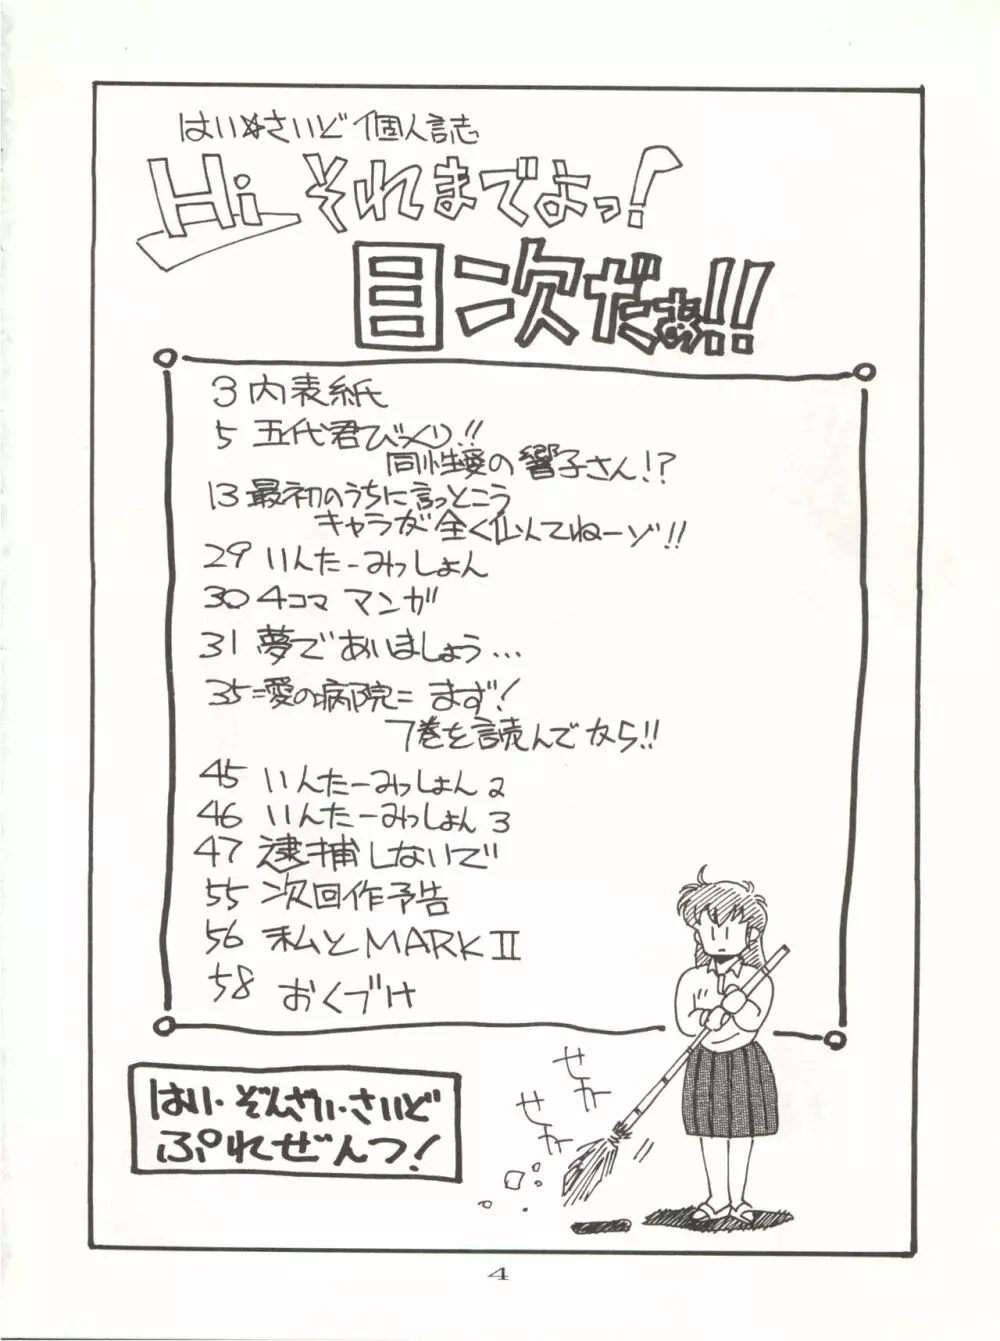 はい☆さいど 個人誌
Hi それまでよっ!
目次だぁ!!
3 内表紙
5 五代君びっくり!!
同性愛の響子さん!?
13 最初のうちに言っとこう
キャラが全く似てねーゾ!!
29 いんたーみっしょん
30 4コママンガ
31 夢であいましょう...
35 =愛の病院= まず!
7巻を読んでから!!
45 いんたーみっしょん2
46 いんたーみっしょん3
47 逮捕しないで
55 次回作予告
56 私とMARK II
58 おくづけ
はい・ぞんざい・さいど
ぷれぜんつ!
せか
せか
4